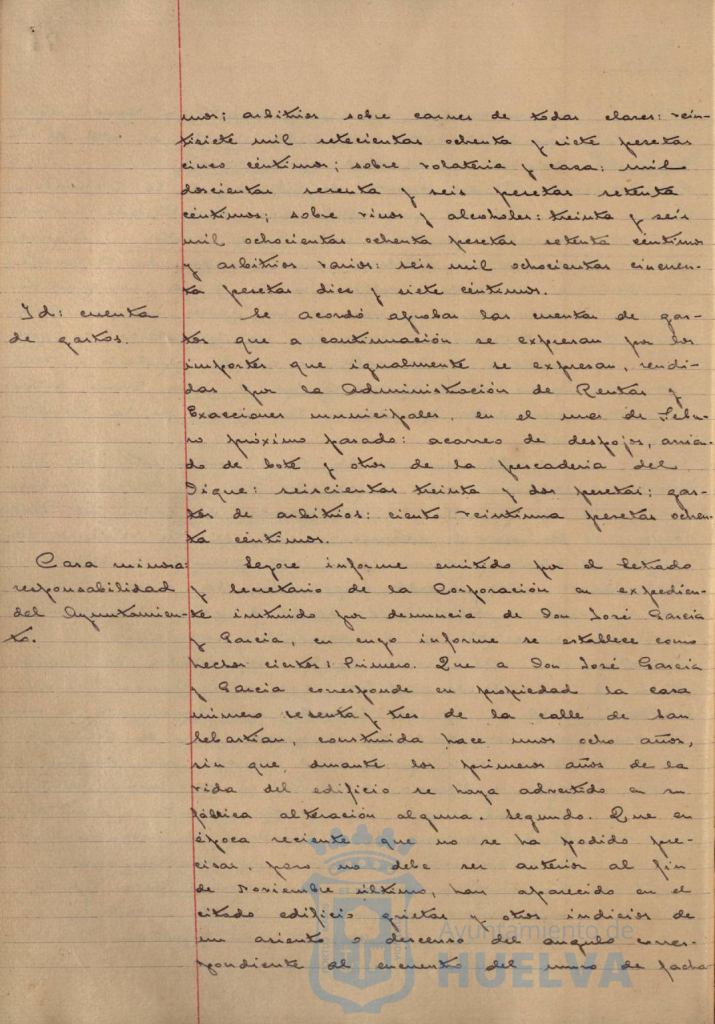 mos; arbitrios sobre carnes de todas clases: vein-
tisiete mil setecientas ochenta y siete pesetas
cinco céntimos; sobre volateria y caza: mil
doscientas sesenta y seis pesetas setenta
céntimos; sobre vinos y alcoholes: treinta y seis
mil ochocientas ochenta pesetas setenta céntimos
y arbitrios varios: seis mil ochocientas cincuen-
ta pesetas diez y siete céntimos.
Id: cuenta
de gastos.
Se acordó aprobar las cuentas de gas-
tos que a continuación se expresan por los
importes que igualmente se expresan, rendi-
das por la Administración de Rentas y
Exacciones municipales, en el mes de Febre-
ro próximo pasado: acarreo de despojos, arria-
do de bote y otros de la pescaderia del
Dique: seiscientas treinta y dos pesetas; gas-
tos de arbitrios: ciento veintiuna pesetas ochen-
ta céntimos.
Casa ruinosa:
responsabilidad
del Ayuntamien-
to.
Leyose informe emitido por el Letrado
y Secretario de la Corporación en expedien-
te instruido por denuncia de Don José Garcia
y Garcia, en cuyo informe se establece como
hechos ciertos: Primero. Que a Don José Garcia
y Garcia corresponde en propiedad la casa
número sesenta y tres de la calle de San
Sebastian, construida hace unos ocho años,
sin que, durante los primeros años de la
vida del edificio se haya advertido en su
fábrica alteración alguna. Segundo. Que en
época reciente que no se ha podido pre-
cisar, pero no debe ser anterior al fin
de Noviembre último, han aparecido en el
citado edificio grietas y otros indicios de
un asiento o descenso del angulo corres-
pondiente al encuentro del muro de facha
Ayuntamiento de
HUELVA